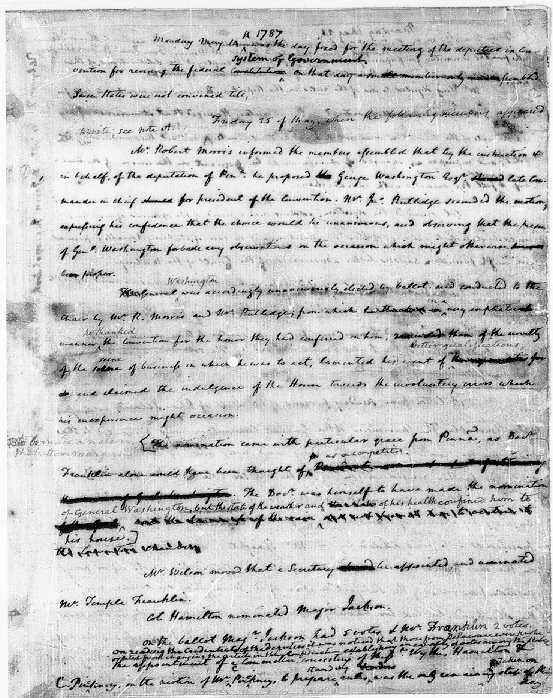 Monday May 14 1787 was the day fixed for the meeting of the deputies in Con
vention for revising the federal system of Government. on that day a small number only had assembled
Seven States were not convened till,
Friday 25 of May, when the following members appeared
viz. see note A.
Mr Robert Morris informed the members assembled that by the instruction &
in behalf, of the deputation of Pena he proposed George Washington Esqr late Com
mander in chief for president of the Convention. Mr Jno Rutlidge seconded the motion,
expressing his confidence that the choice would be unanimous, and observing that the presence
of Genl Washington forbade any observations on the occasion which might otherwise
be proper.
General Washington was accordingly unanimously elected by ballot, and conducted to the
Chair by Mr R. Morris and Mr Rutlidge; from which in a very emphatic
manner he thanked the Convention for the honor they had conferred on him, reminded them of the novelty
of the scene of business in which he was to act, lamented his want of better qualifications
and claimed the indulgence of the House towards the involuntary errors which
his inexperience might occasion.
(The nomination came with particular grace from Penna, as Docr
Franklin alone could have been thought of as a competitor.
The Docr was himself to have made the nomination
of General Washington, but the state of the weather and of his health confined him to
his house.)
Mr Wilson moved that a Secretary be appointed, and nominated
Mr Temple Franklin.
Col Hamilton nominated Major Jackson.
On the ballot Majr Jackson had 5 votes & Mr Franklin 2 votes.
On reading the Credentials of the deputies it was noticed that those from Delaware were prohibited from changing the
the appointment of a Committee, consisting of Mr Wythe, Hamilton &
C. Pinckney, on the motion of Mr Pinckney, to prepare standing rules, was the only remaining step taken on
this day